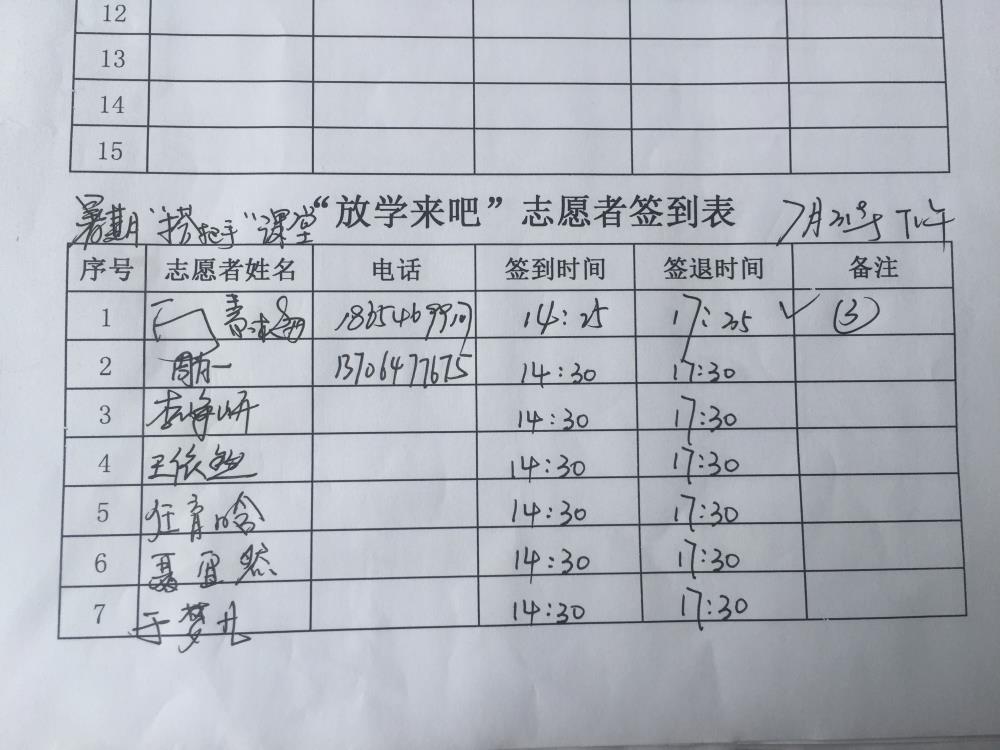 12
13
14
15
暑期“搭把手”课堂 “放学来吧”志愿者签到表 7月 下午
序号 志愿者姓名 电话 签到时间 签退时间 备注
1 14:25 17:25 ✓ ③
2 周有一 13706477675 14:30 17:30
3 14:30 17:30
4 王依 14:30 17:30
5 14:30 17:30
6 聂宜然 14:30 17:30
7 于梦凡 14:30 17:30